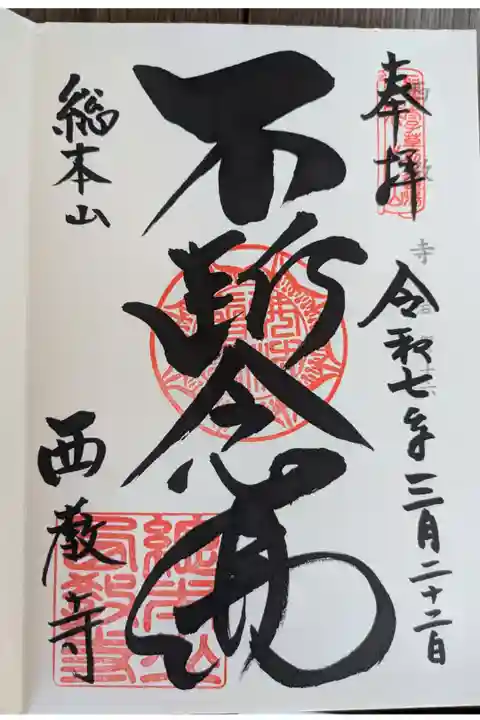 奉拝
令和七年三月二十二日
不断念佛
総本山
西教寺